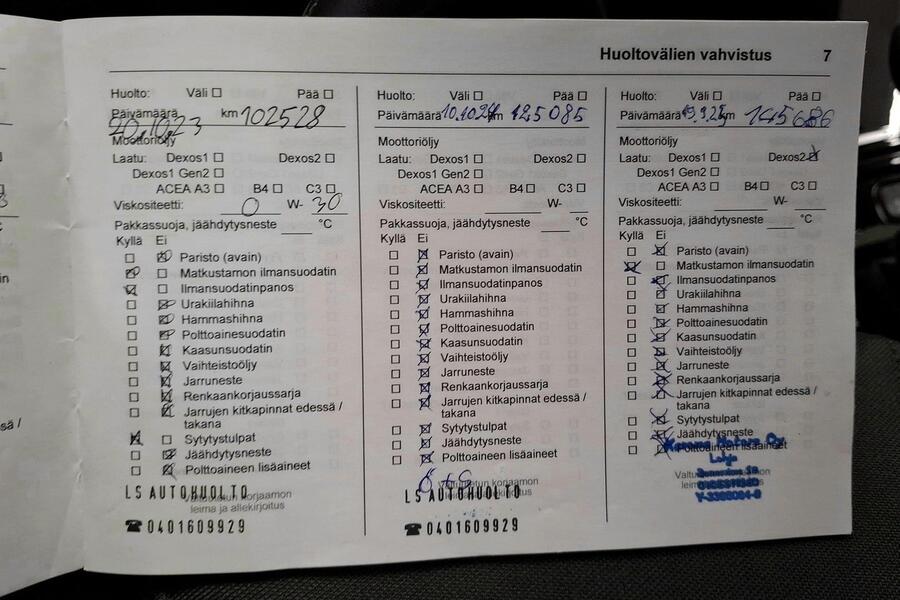 Huoltovälien vahvistus 7
Huolto: Väli ☐ Pää ☐
Päivämäärä 20.10.23 km 102528
Moottoriöljy
Laatu: Dexos1 ☐ Dexos2 ☐
Dexos1 Gen2 ☐
ACEA A3 ☐ B4 ☐ C3 ☐
Viskositeetti: 0 W- 30
Pakkassuoja, jäähdytysneste °C
Kyllä Ei
Paristo (avain)
Matkustamon ilmansuodatin
Ilmansuodatinpanos
Urakiilahihna
Hammashihna
Polttoainesuodatin
Kaasunsuodatin
Vaihteistoöljy
Jarruneste
Renkaankorjaussarja
Jarrujen kitkapinnat edessä /
takana
Sytytystulpat
Jäähdytysneste
Polttoaineen lisäaineet
LS AUTOHUOLTO
korjaamon
leima ja allekirjoitus
☎ 0401609929
Huolto: Väli ☐ Pää ☐
Päivämäärä 10.10.24 km 125085
Moottoriöljy
Laatu: Dexos1 ☐ Dexos2 ☐
Dexos1 Gen2 ☐
ACEA A3 ☐ B4 ☐ C3 ☐
Viskositeetti: W-
Pakkassuoja, jäähdytysneste °C
Kyllä Ei
Paristo (avain)
Matkustamon ilmansuodatin
Ilmansuodatinpanos
Urakiilahihna
Hammashihna
Polttoainesuodatin
Kaasunsuodatin
Vaihteistoöljy
Jarruneste
Renkaankorjaussarja
Jarrujen kitkapinnat edessä /
takana
Sytytystulpat
Jäähdytysneste
Polttoaineen lisäaineet
Ö+S
LS AUTOHUOLTO
korjaamon
☎ 0401609929
Huolto: Väli ☐ Pää ☐
Päivämäärä km 145686
Moottoriöljy
Laatu: Dexos1 ☐ Dexos2 ☒
Dexos1 Gen2 ☐
ACEA A3 ☐ B4 ☐ C3 ☐
Viskositeetti: W-
Pakkassuoja, jäähdytysneste °C
Kyllä Ei
Paristo (avain)
Matkustamon ilmansuodatin
Ilmansuodatinpanos
Urakiilahihna
Hammashihna
Polttoainesuodatin
Kaasunsuodatin
Vaihteistoöljy
Jarruneste
Renkaankorjaussarja
Jarrujen kitkapinnat edessä /
takana
Sytytystulpat
Jäähdytysneste
Polttoaineen lisäaineet
Motors Oy
Lohja